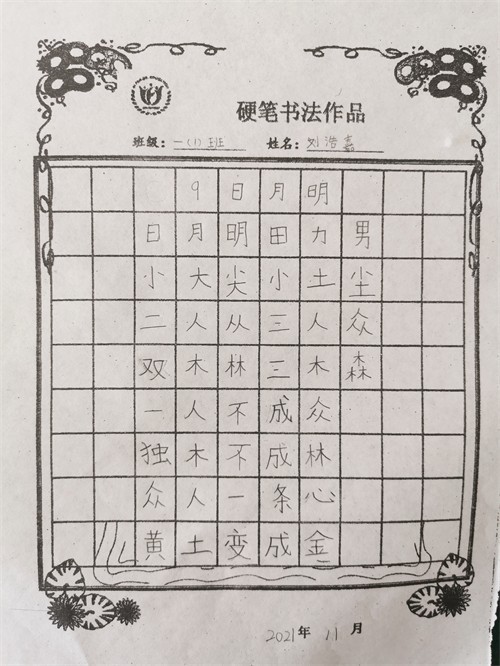 硬笔书法作品
班级：一(1)班 姓名：刘浩嘉
9日月明
日月明田力男
小大尖小土尘
二人从三人众
双木林三木森
一人不成众
独木不成林
众人一条心
黄土变成金
2021年11月